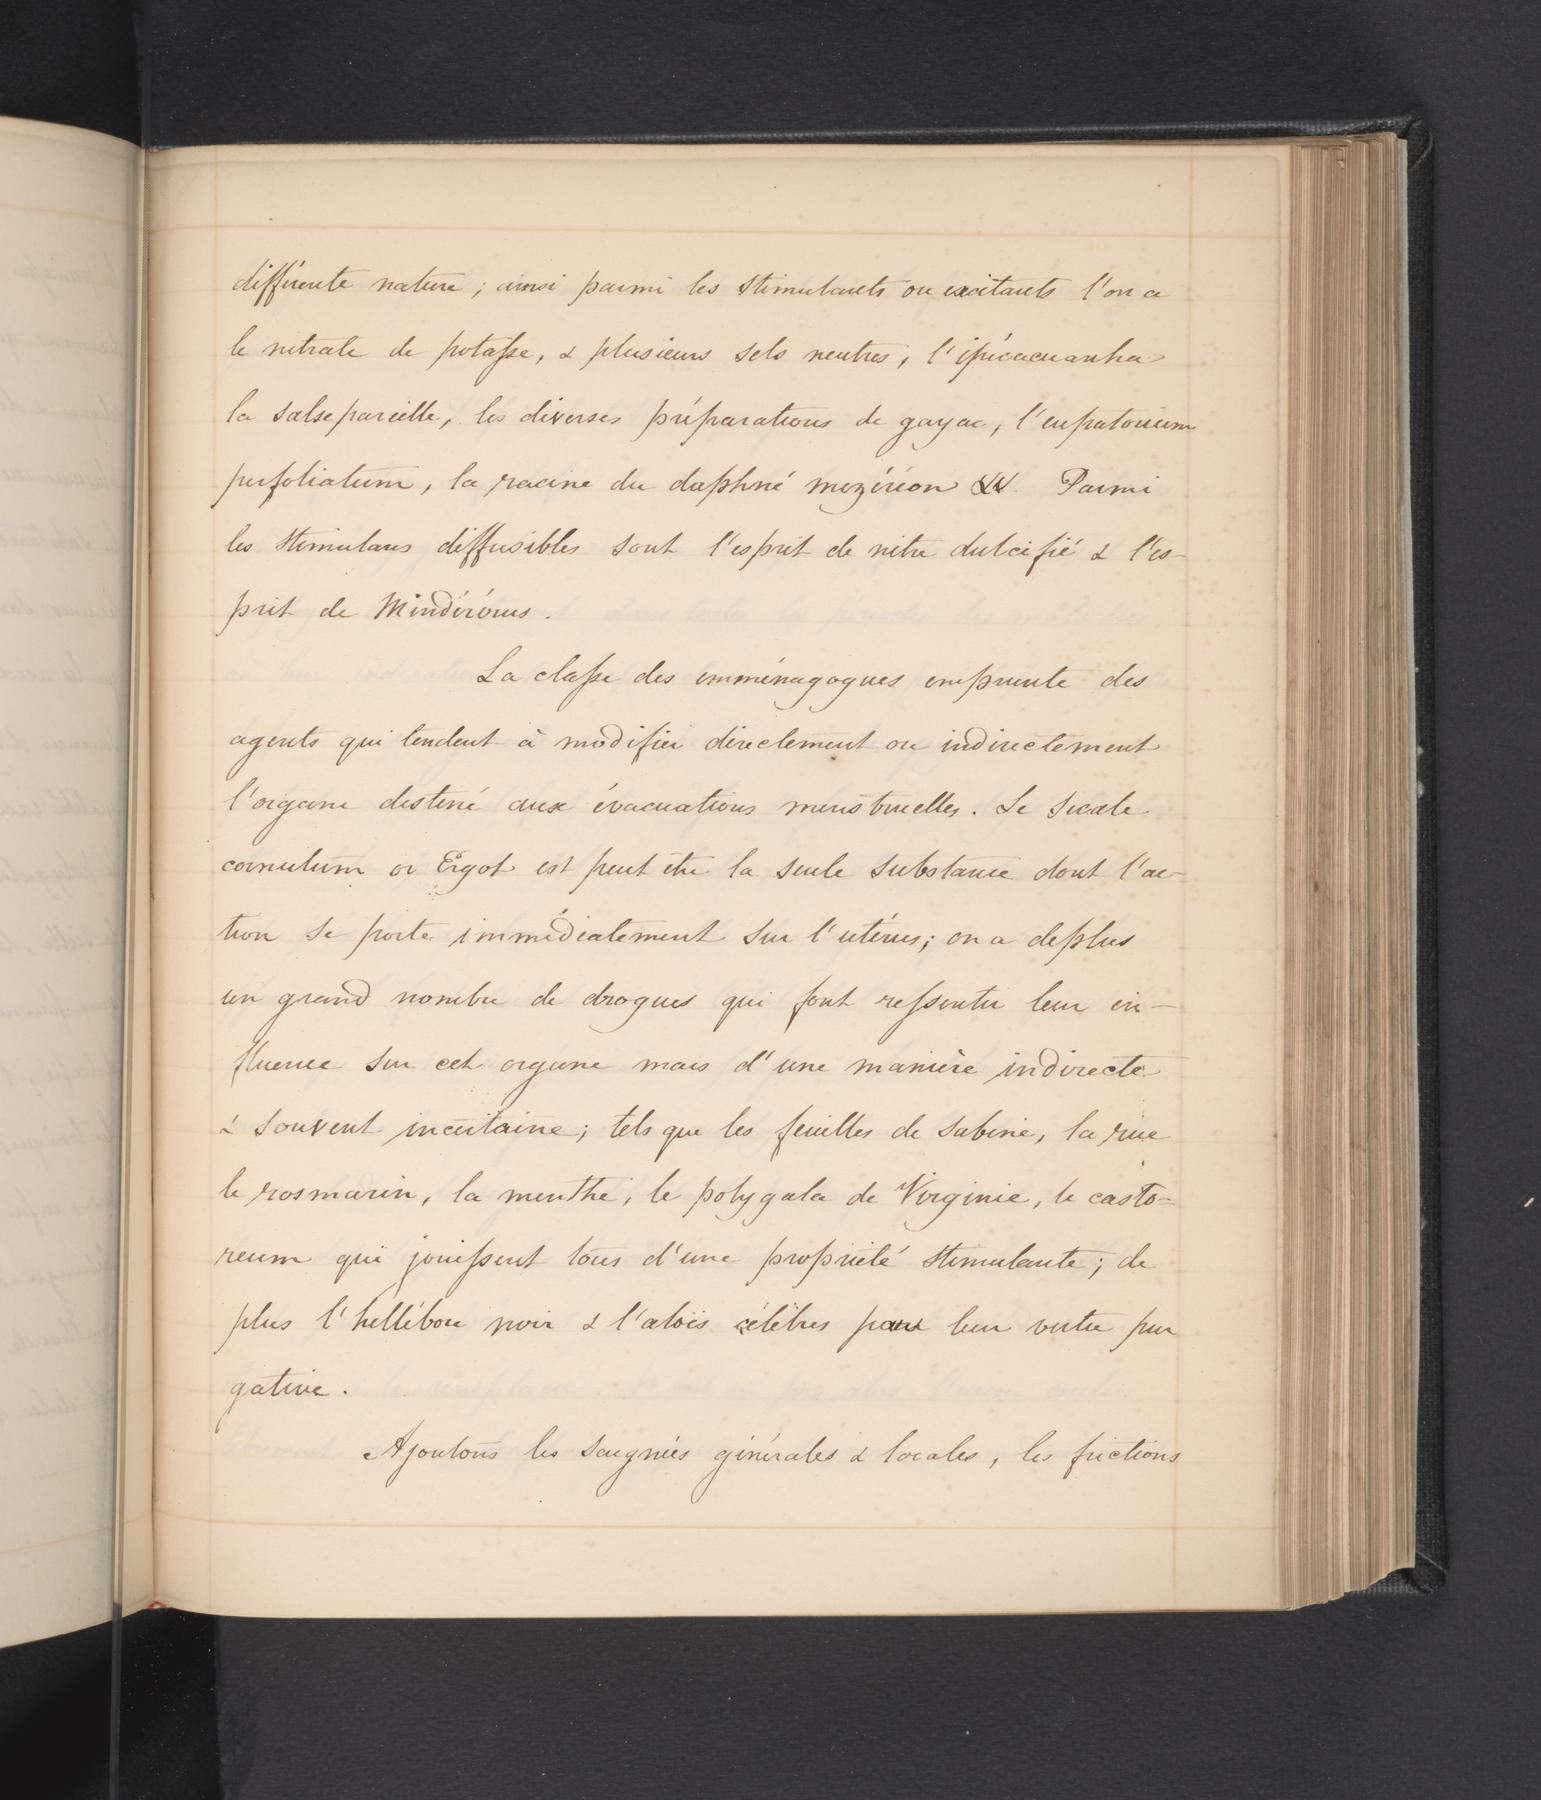 différente nature ; ainsi parmi les stimulants ou excitants l'on a
le nitrate de potasse, & plusieurs sels neutres ; l'ipécacuanha
la salsepareille, les diverses préparations de gayac, l'eupatorium
perfoliatum, la racine du daphné mézéréon &&. Parmi
les stimulans diffusibles sont l'esprit de nitre dulcifié & l'es-
prit de Mindérérus.
La classe des emménagogues emprunte des
agents qui tendent à modifier directement ou indirectement
l'organe destiné aux évacuations menstruelles. Le Secale
cornutum or Ergot est peut être la seule substance dont l'ac-
tion se porte immédiatement sur l'utérus; on a deplus
un grand nombre de drogues qui font ressentir leur in-
fluence sur cet organe mais d'une manière indirecte
& souvent incertaine; tels que les feuilles de sabine, la rue
le rosmarin, la menthe, le polygala de Virginie, le casto-
reum qui jouissent tous d'une propriété stimulante; de
plus l'hellébore noir & l'aloës célèbres pour leur vertu pur
gative.
Ajoutons les saignées générales & locales, les frictions